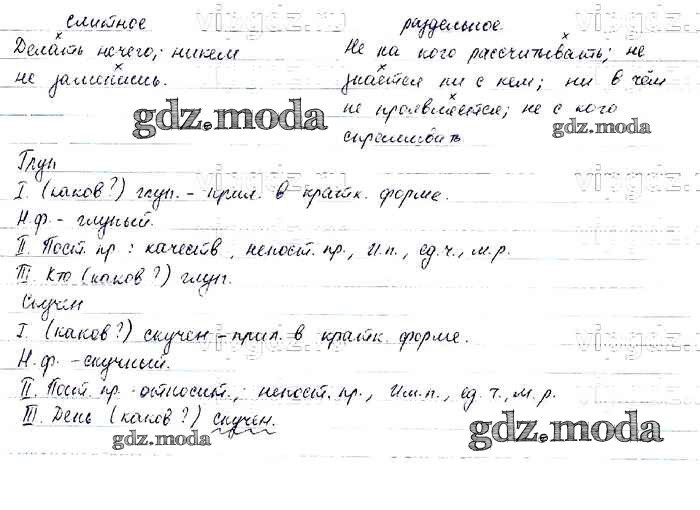 слитное
Делать нечего; никем
не заменишь.
раздельное.
Не на кого рассчитывать; не
знается ни с кем; ни в чём
не проявляется; не с кого
спрашивать.
Глуп
I. (каков?) глуп. - прил. в кратк. форме.
Н.ф. - глупый.
II. Пост. пр: качеств, непост. пр., И.п., ед.ч., м.р.
III. Кто (каков?) глуп.
Скучен
I. (каков?) скучен - прил. в кратк. форме.
Н.ф. - скучный.
II. Пост. пр - относит.; непост. пр., Им.п., ед.ч., м.р.
III. День (каков?) скучен.
gdz.moda
gdz.moda
gdz.moda
gdz.moda
gdz.moda
vipgdz.ru
vipgdz.ru
vipgdz.ru
vipgdz.ru